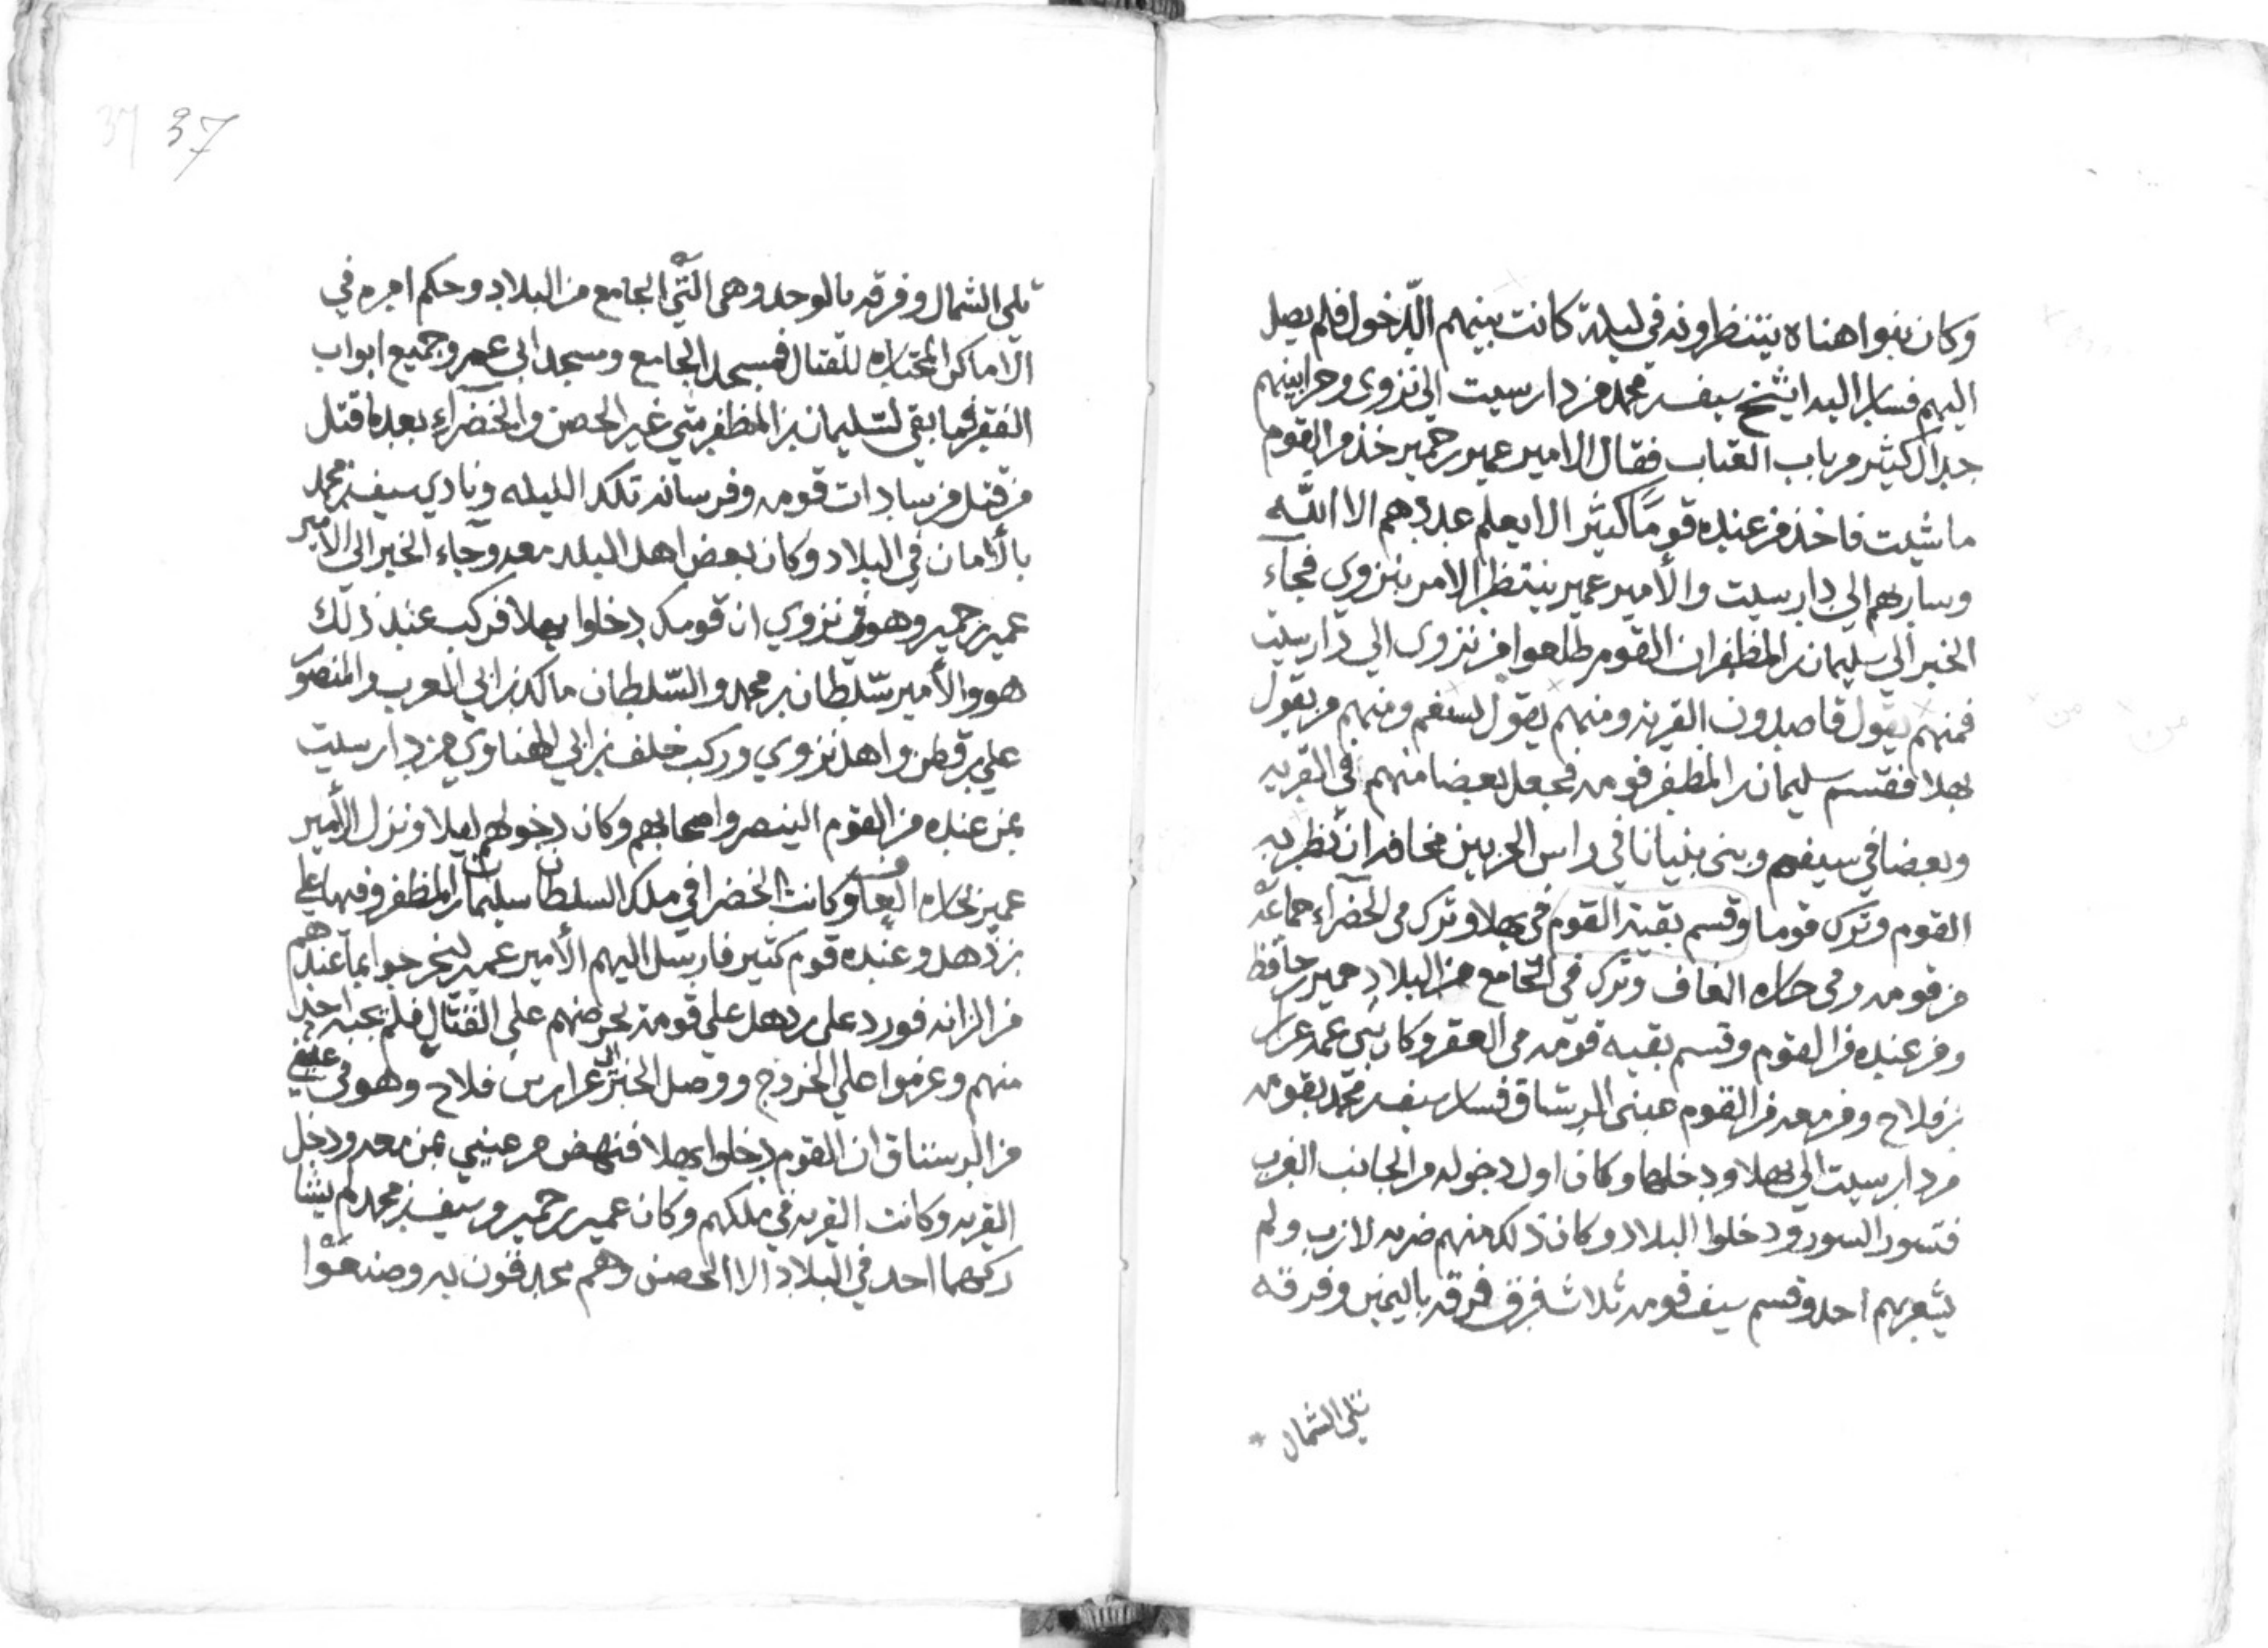 وكان بنوا هناه ينتظرونه في ليلة كانت بينهم الدّخول فلم يصل
اليهم فسار اليه الشيخ سيف بن محمد من دار سيت الى نزوى وجرا بينهم
جدال كثير من باب العتاب فقال الامير عمير بن حمير خذ من القوم
ما شئت فاخذ من عنده قومًا كثيرا لا يعلم عددهم الا الله
وسار بهم الى دار سيت والأمير عمير ينتظر الامر بنزوى فجآء
الخبر الي سليمان بن المظفر ان القوم طلعوا من نزوى الي دار سيت
فمنهم يقول قاصدون القريه ومنهم يقول لسيفم ومنهم من يقول
بهلا فقسم سليمان بن المظفر قومه فجعل بعضا منهم في القريه
وبعضا في سيفم وبنى بنيانا في راس مخافه ان نظر به
القوم وترك قوما وقسم بقية القوم في بهلا وترك في الخضرآء جماعة
من قومه وفي حاره الغاف وترك في الجامع من البلاد حمير بن حافظ
ومن عنده من القوم وقسم بقيه قومه في العقر وكان بني عمه عرار
بن فلاح ومن معه من القوم عيني الرستاق فسار سيف بن محمد بقومه
من دار سيت الي بهلا ودخلها وكان اول دخوله من الجانب الغرب
فتسور السور ودخلوا البلاد وكان ذلك منهم ضربه لازب ولم
يشعر بهم احد وقسم سيف قومه ثلاث فرق فرقه باليمين وفرقة
تلي الشمال
37 37
تلي الشمال وفرقه بالوحد وهي الّتي الجامع من البلاد وحكم امره في
الاماكن المختاره للقتال فمسجد الجامع ومسجد ابي عمر وجميع ابواب
العقر فما بقي لسليمان بن المظفر شي غير الحصن والخضرآء بعد ما قتل
من قتل من سادات قومه وفرسانه تلك الليله ونادي سيف بن محمد
بالأمان في البلاد وكان بعض اهل البلد معه وجآء الخبر الى الأمير
عمير بن حمير وهو في نزوي ان قومك دخلوا بهلا فركب عند ذلك
هو والأمير سلطان بن محمد والسّلطان مالك بن ابي العرب والمنصور
علي بن قطن واهل نزوي وركب خلف بن ابي الهناوي من دار سيت
بمن عنده من القوم لينصروا اصحابهم وكان دخولهم ليلا ونزل الأمير
عمير بحاره الغاف وكانت الخضرا في ملك السلطان سليمان بن المظفر وفيها علي
بن ذهل وعنده قوم كثير فارسل اليهم الأمير عمير ليخرجوا بما عندهم
من الزانه فورد علي بن دهل علي قومه يحرضهم علي القتال فلم يجبه احد
منهم وعزموا علي الخروج ووصل الخبر الى عرار بن فلاح وهو في عيني
من الرستاق ان القوم دخلوا بهلا فنهض من عيني بمن معه ودخل
القريه وكانت القريه في ملكهم وكان عمير بن حمير وسيف بن محمد لم يشا
ركهما احد في البلاد الا الحصن وهم محدقون به وصنعوا